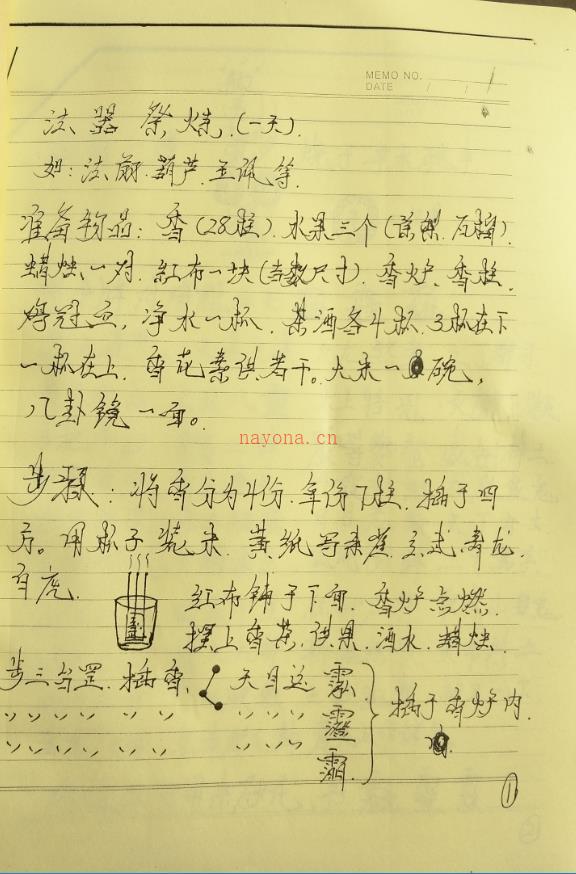 MEMO NO.
DATE / /
1
法器祭炼,(一天).
如:法扇.葫芦.玉佩等.
准备物品:香(28柱).水果三个(
蜡烛一对.红布一块(当数尺寸).香炉.香柱.
净水一杯.茶酒各4杯.3杯在下
一杯在上.香花素供若干。大米一碗,
八卦镜一面。
nayona.cn
步骤:将香分为4份.每份7柱.插于四
方。用杯子装米.黄纸写朱雀.玄武青龙.
白虎.
红布铺于下面.香炉点燃.
摆上香茶.供果.酒水.蜡烛.
步三台罡.插香.天目运
插于香炉内.
①